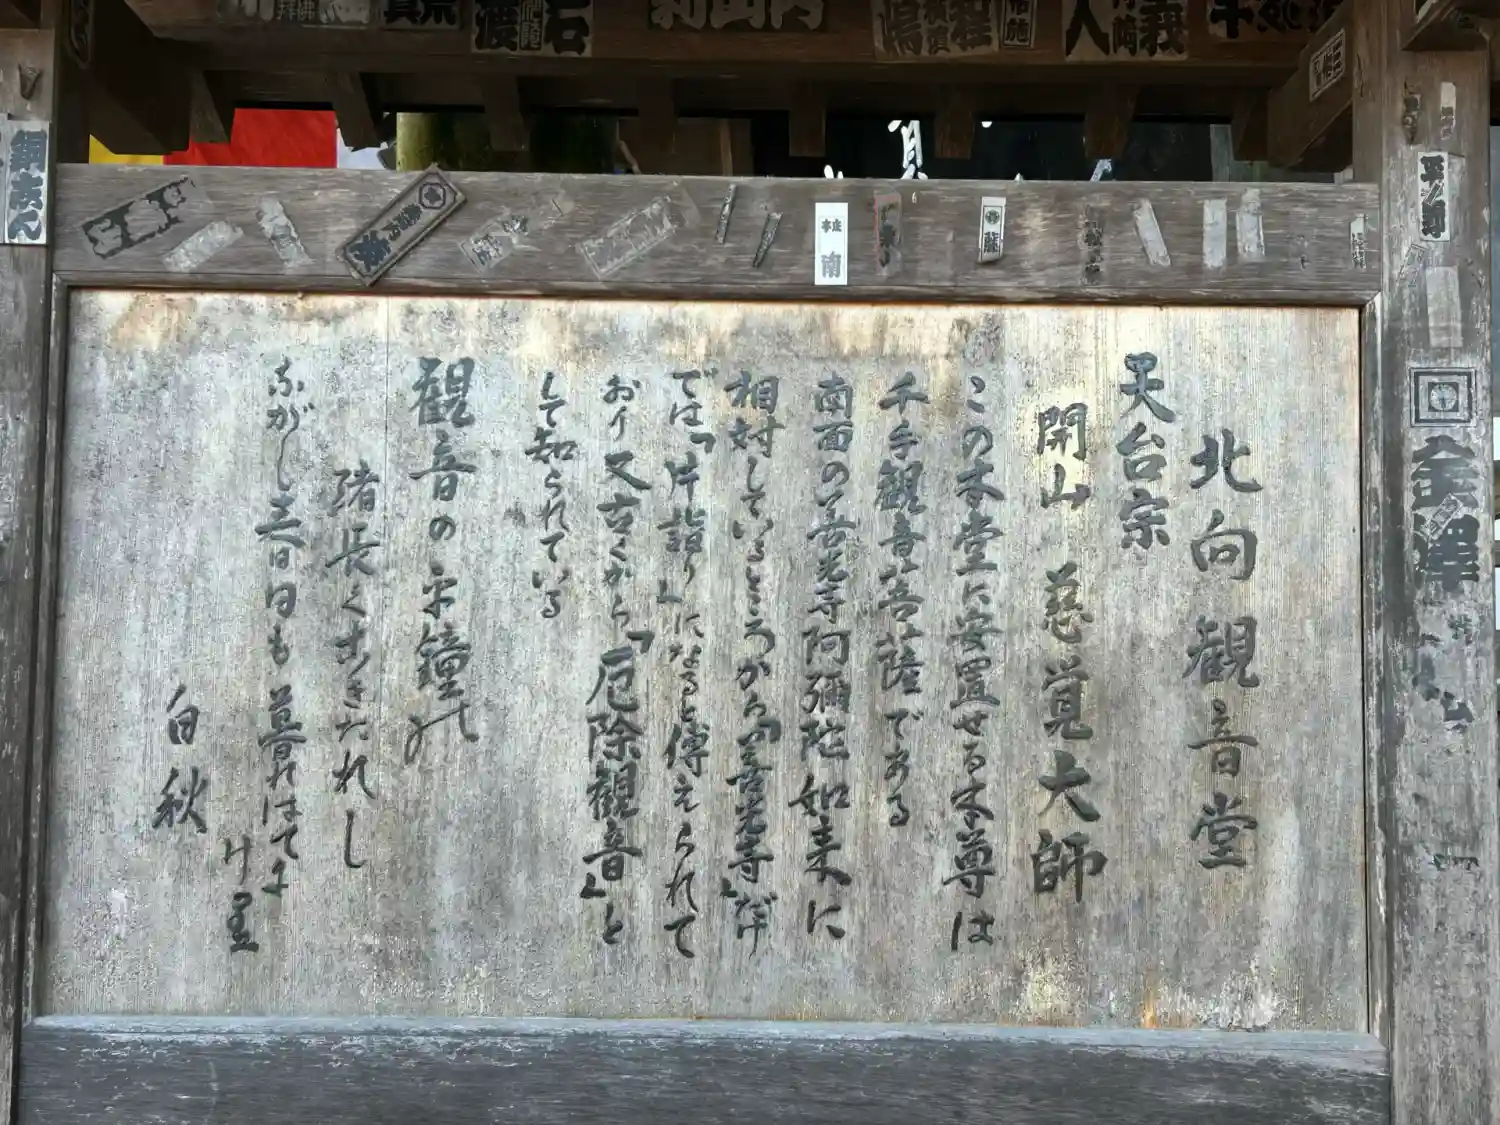 石渡
銅志ん
南
北向観音堂
天台宗
開山 慈覚大師
この本堂に安置せる本尊は
千手観音菩薩である
南面の善光寺阿彌陀如来に
相対しているところから「善光寺」だけ
では「片詣り」になると傳えられて
おり又古くから「厄除観音」と
して知られている
観音の 鐘の
緒長く きたれし
ながし春日も暮れはてに
け里
白秋
金澤